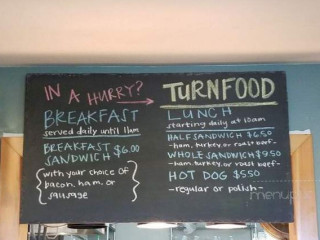 IN A HURRY?
BREAKFAST
served daily until 11am
BREAKFAST $6.00
SANDWICH
with your choice of
bacon, ham, or
sausage
TURNFOOD
LUNCH
starting daily at 10am
HALF SANDWICH $6.50
-ham, turkey, or roast beef-
WHOLE SANDWICH $9.50
-ham, turkey, or roast beef-
HOT DOG $5.50
-regular or polish-